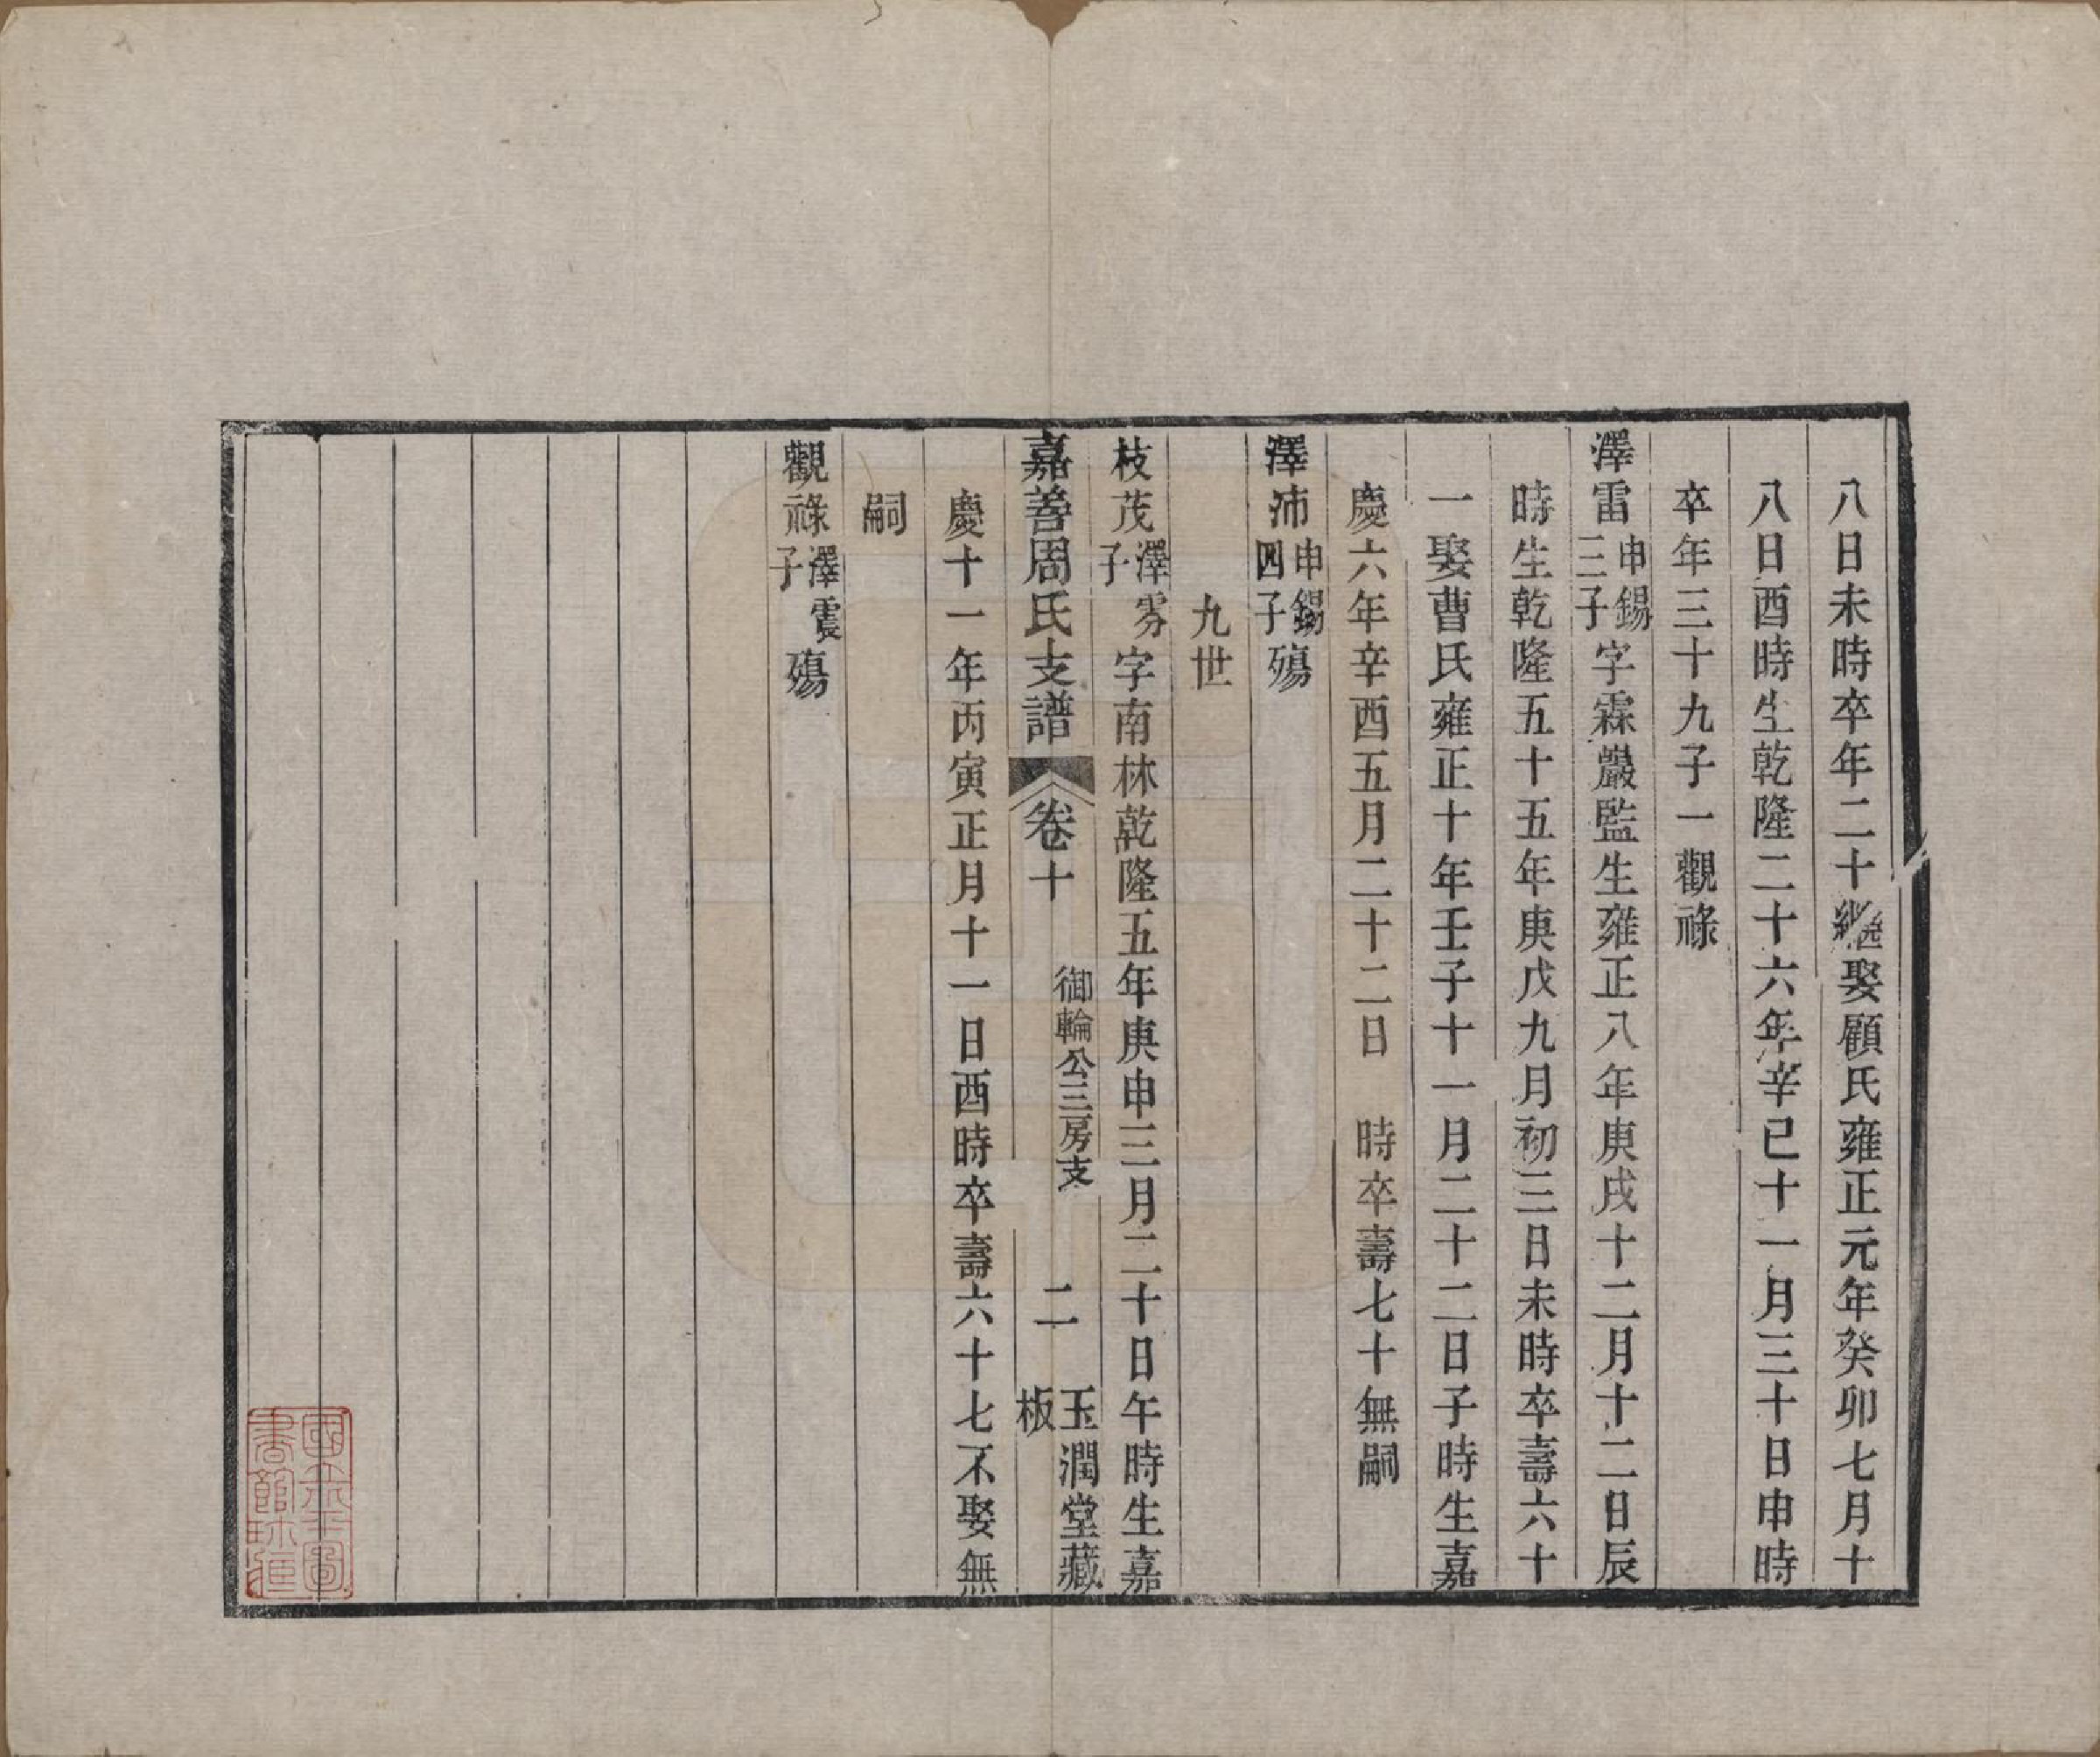 八日未時卒年二十繼娶顧氏雍正元年癸卯七月十
八日酉時生乾隆二十六年辛巳十一月三十日申時
卒年三十九子一觀祿
澤雷申錫三子字霖巖監生雍正八年庚戌十二月十二日辰
時生乾隆五十五年庚戌九月初三日未時卒壽六十
一娶曹氏雍正十年壬子十一月二十二日子時生嘉
慶六年辛酉五月二十二日　時卒壽七十無嗣
澤沛申錫四子殤
九世
枝茂澤雱子字南林乾隆五年庚申三月二十日午時生嘉
嘉善周氏支譜　卷十　御輪公三房支　二　玉潤堂藏板
慶十一年丙寅正月十一日酉時卒壽六十七不娶無
嗣
觀祿澤震子殤
國立北平圖書館收藏